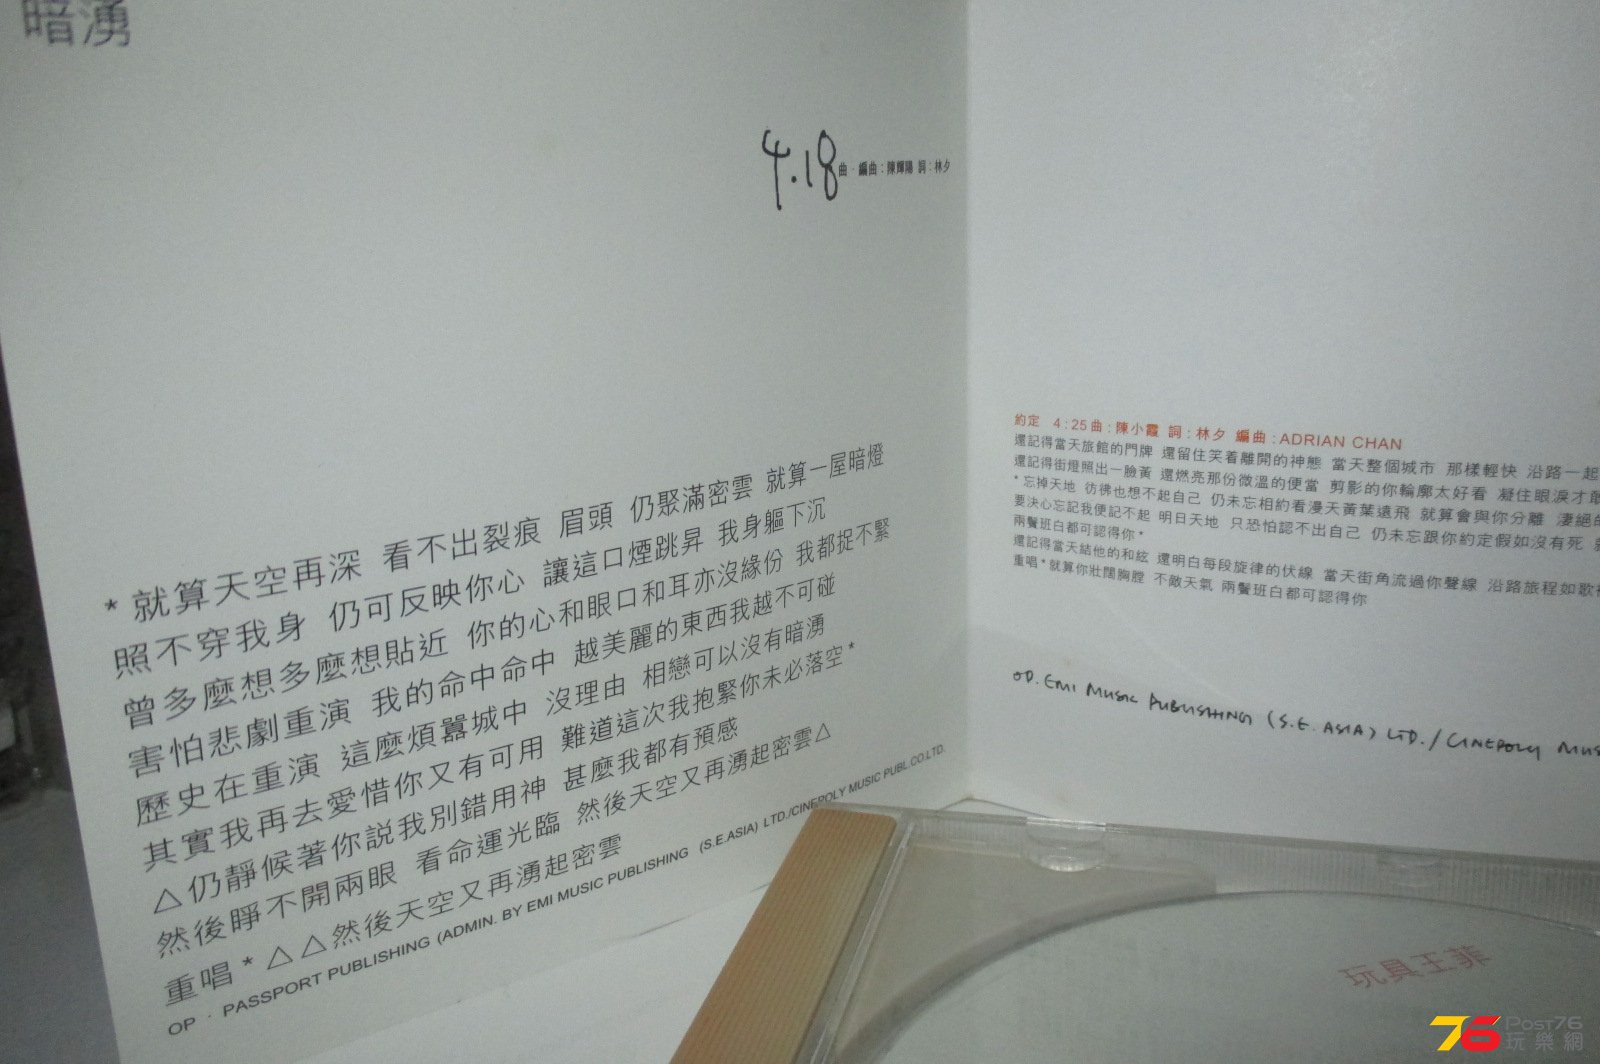 暗湧
4.18 曲．編曲：陳輝陽 詞：林夕
* 就算天空再深 看不出裂痕 眉頭 仍聚滿密雲 就算一屋暗燈
照不穿我身 仍可反映你心 讓這口煙跳昇 我身軀下沉
曾多麼想多麼想貼近 你的心和眼口和耳亦沒緣份 我都捉不緊
害怕悲劇重演 我的命中命中 越美麗的東西我越不可碰
歷史在重演 這麼煩囂城中 沒理由 相戀可以沒有暗湧
其實我再去愛惜你又有可用 難道這次我抱緊你未必落空 *
△仍靜候著你説我別錯用神 甚麼我都有預感
然後睜不開兩眼 看命運光臨 然後天空又再湧起密雲△
重唱 * △ △然後天空又再湧起密雲
OP ． PASSPORT PUBLISHING (ADMIN. BY EMI MUSIC PUBLISHING (S.E.ASIA) LTD./CINEPOLY MUSIC PUBL.CO.LTD.
約定 4:25 曲：陳小霞 詞：林夕 編曲：ADRIAN CHAN
還記得當天旅館的門牌 還留住笑着離開的神態 當天整個城市 那樣輕快 沿路一起
還記得街燈照出一臉黃 還燃亮那份微溫的便當 剪影的你輪廓太好看 凝住眼淚才敢
*忘掉天地 彷彿也想不起自己 仍未忘相約看漫天黃葉遠飛 就算會與你分離 淒絕的
要決心忘記我便記不起 明日天地 只恐怕認不出自己 仍未忘跟你約定假如沒有死
兩鬢班白都可認得你*
還記得當天結他的和絃 還明白每段旋律的伏線 當天街角流過你聲線 沿路旅程如歌
重唱*就算你壯闊胸膛 不敵天氣 兩鬢班白都可認得你
OP. EMI MUSIC PUBLISHING (S.E. ASIA) LTD./CINEPOLY MUS
玩具王菲
76 Post76
玩樂網